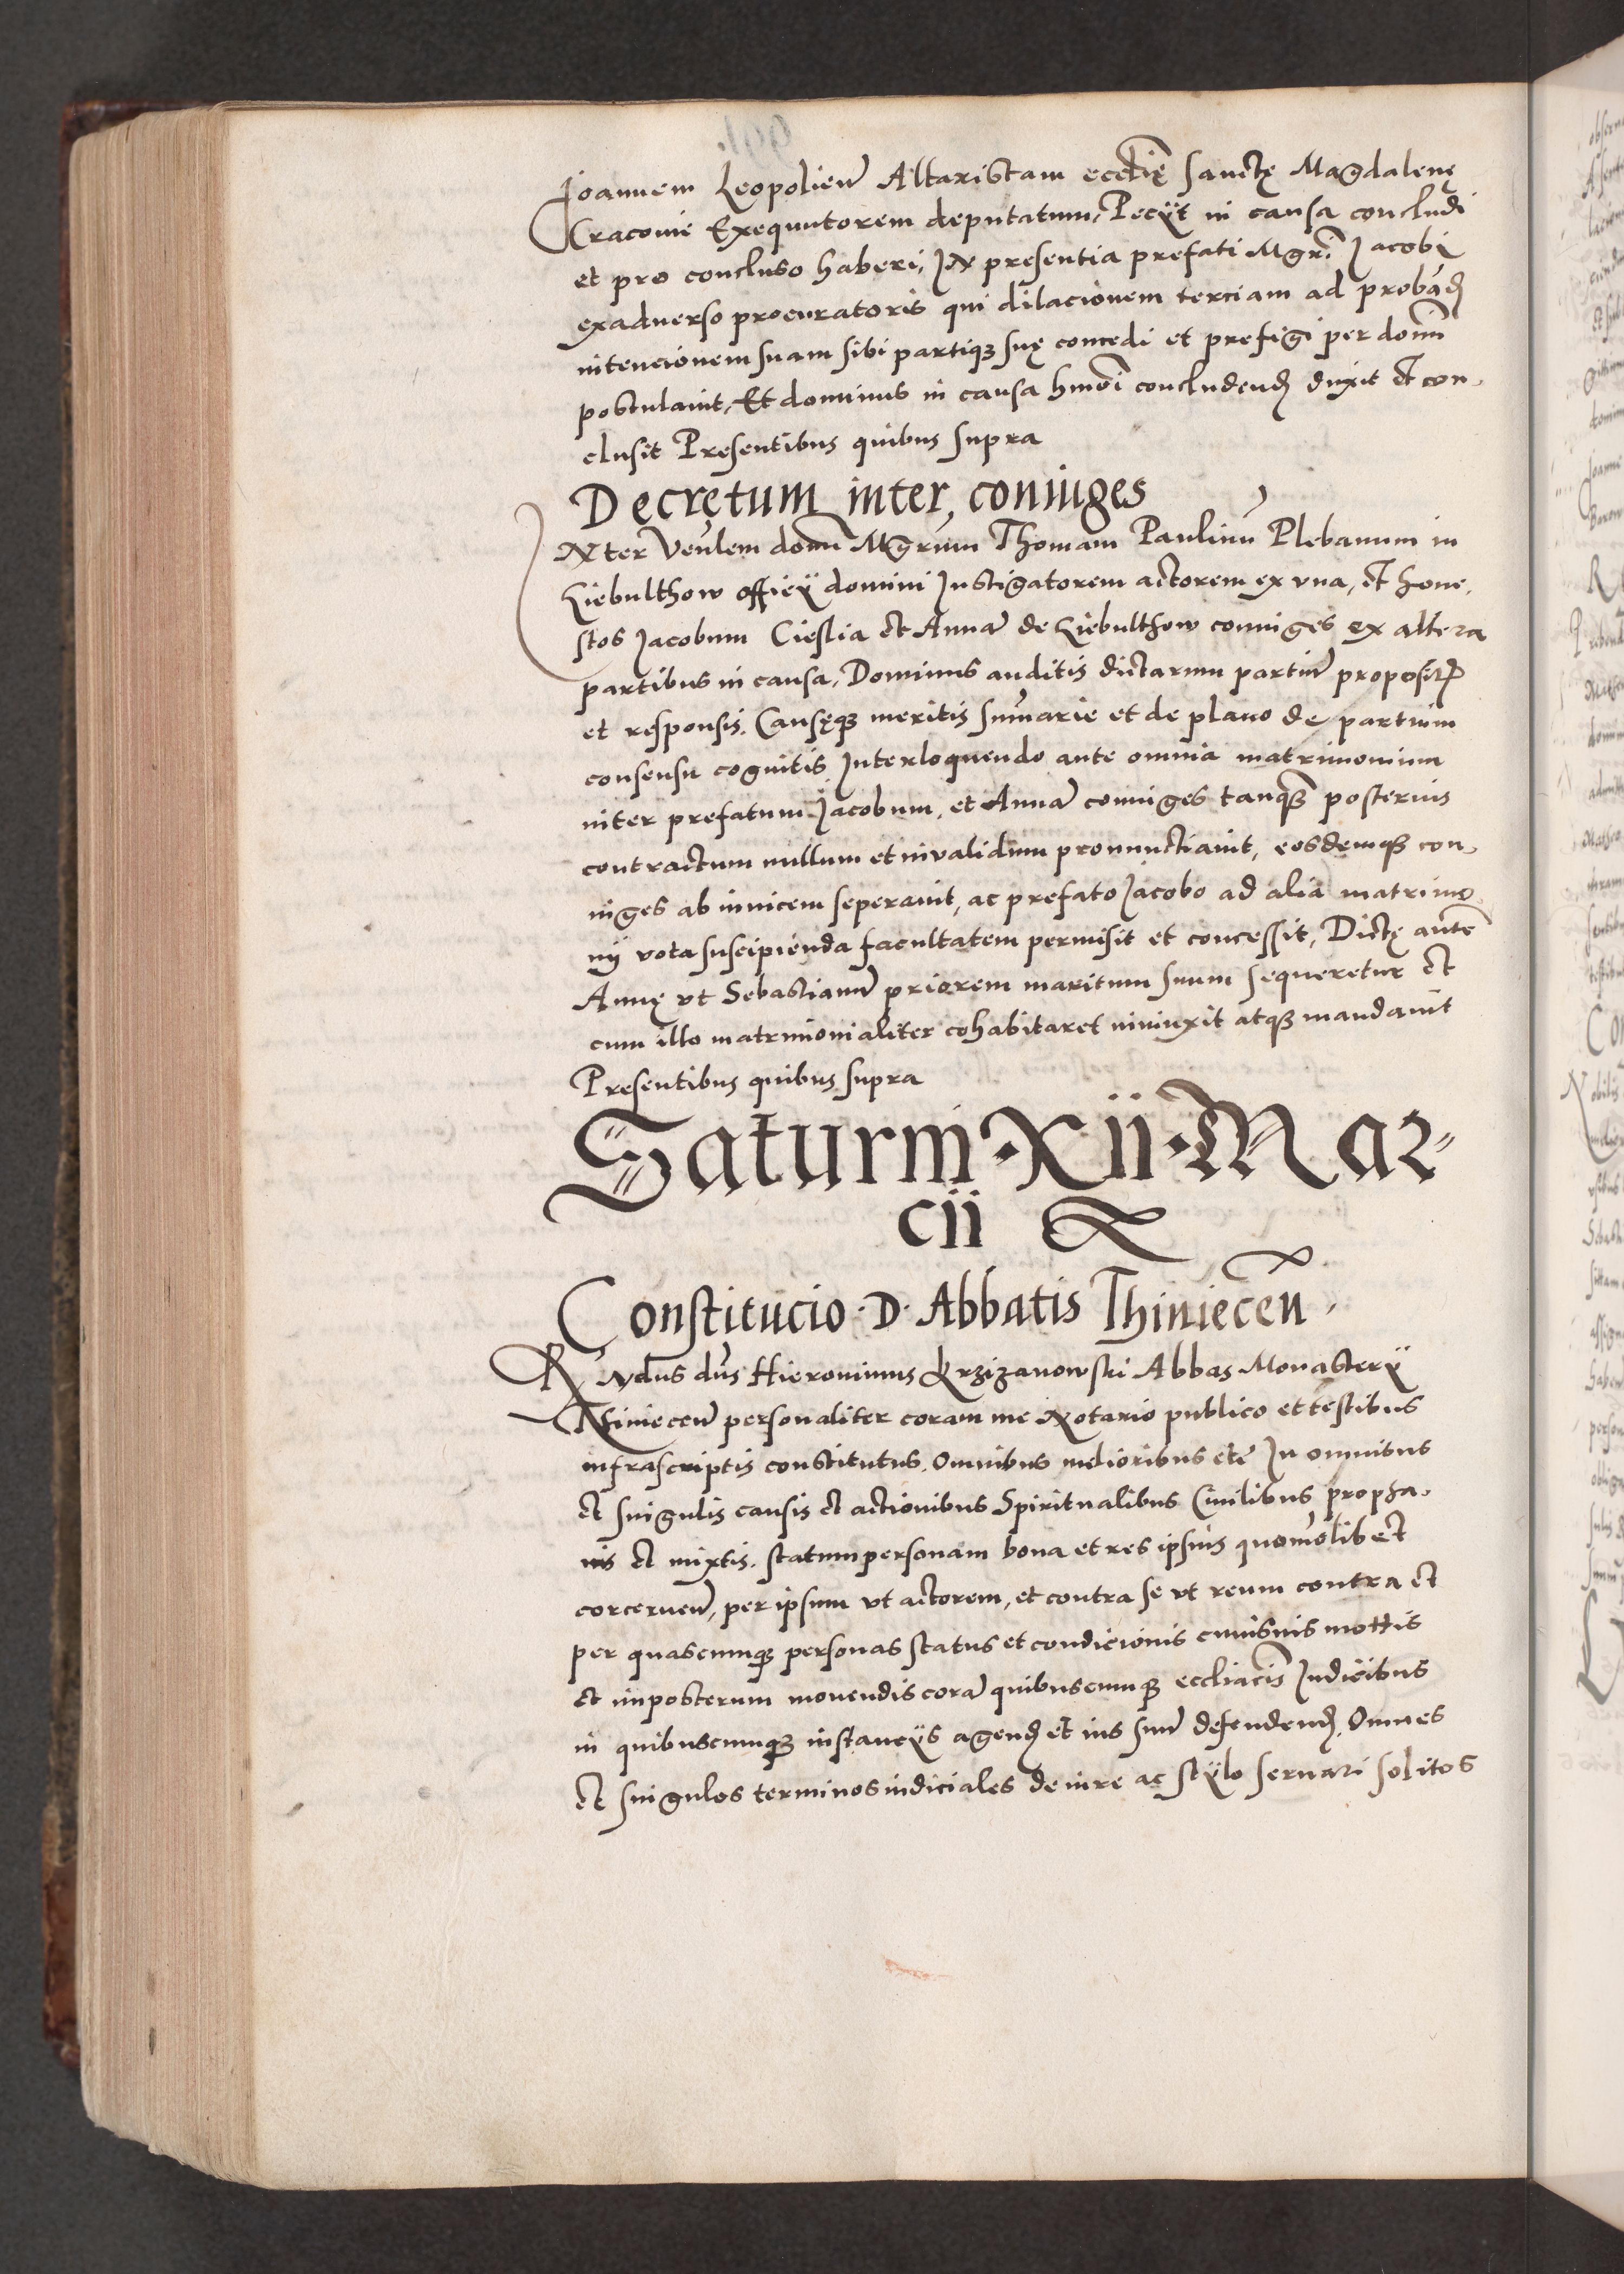 Joannem Leopolien̄ Altaristam eccl̄ię Sanctę Magdalenę
Cracovię Exequutorem deputatum, Peciÿt in causa concludi
et pro concluso haberi, IN presentia prefati Mgr̄i Jacobi
exadverso procuratoris qui dilacionem terciam ad proband̄
intencionem suam sibi partiq₃ suę concedi et prefigi per don̄m
postulavit, Et dominus in causa hmōi concludend̄ duxit et con-
clusit Presentibus quibus supra
Decrętum inter coniuges
INter Ven̄lem don̄m Mgr̄um Thomam Paulinū Plebanum in
Liebulthow officÿ domini Instigatorem actorem ex vna, et hone-
stos Jacobum Cieslia et Annā de Liebulthow coniuges ex altera
partibus in causa, Dominus auditis dictarum partiū proposit̄
et responsis, Causęq₃ meritis sum̄arie et de plano de partium
consensu cognitis Interloquendo ante omnia matrimonium
inter prefatum Jacobum, et Annā coniuges tanq₃ posterius
contractum nullum et invalidum pronunctiavit, eosdemq₃ con-
iuges ab invicem seperavit, ac prefato Jacobo ad alia matrimo
nÿ vota suscipienda facultatem permisit et concessit, Dictę autē
Annę vt Sebastianū priorem maritum suum sequeretur et
cum illo matrimonialiter cohabitaret iniunxit atq₃ mandavit
Presentibus quibus supra
Saturni · Xii · Mar-
cii
Constitucio · D · Abbatis Thiniecen̄
RNdus dn̄s Hieronimus Krzizanowski Abbas Monasterÿ
Thiniecen̄ personaliter coram me Notario publico et testibus
infrascriptis constitutus, Omnibus melioribus etc̄ In omnibus
et singulis causis et actionibus Spiritualibus Civilibus propha-
nis et mixtis, statum personam bona et res ipsius quomōlibet
corcernen̄, per ipsum vt actorem, et contra se vt reum contra et
per quascumq₃ personas status et condicionis cuiusvis mottis
et imposterum movendis corā quibuscumq₃ eccliācis Iudicibus
in quibuscumq₃ instancÿs agend̄ et ius suū defendend̄, Omnes
et singulos terminos iudiciales de iure ac stÿlo servari solitos